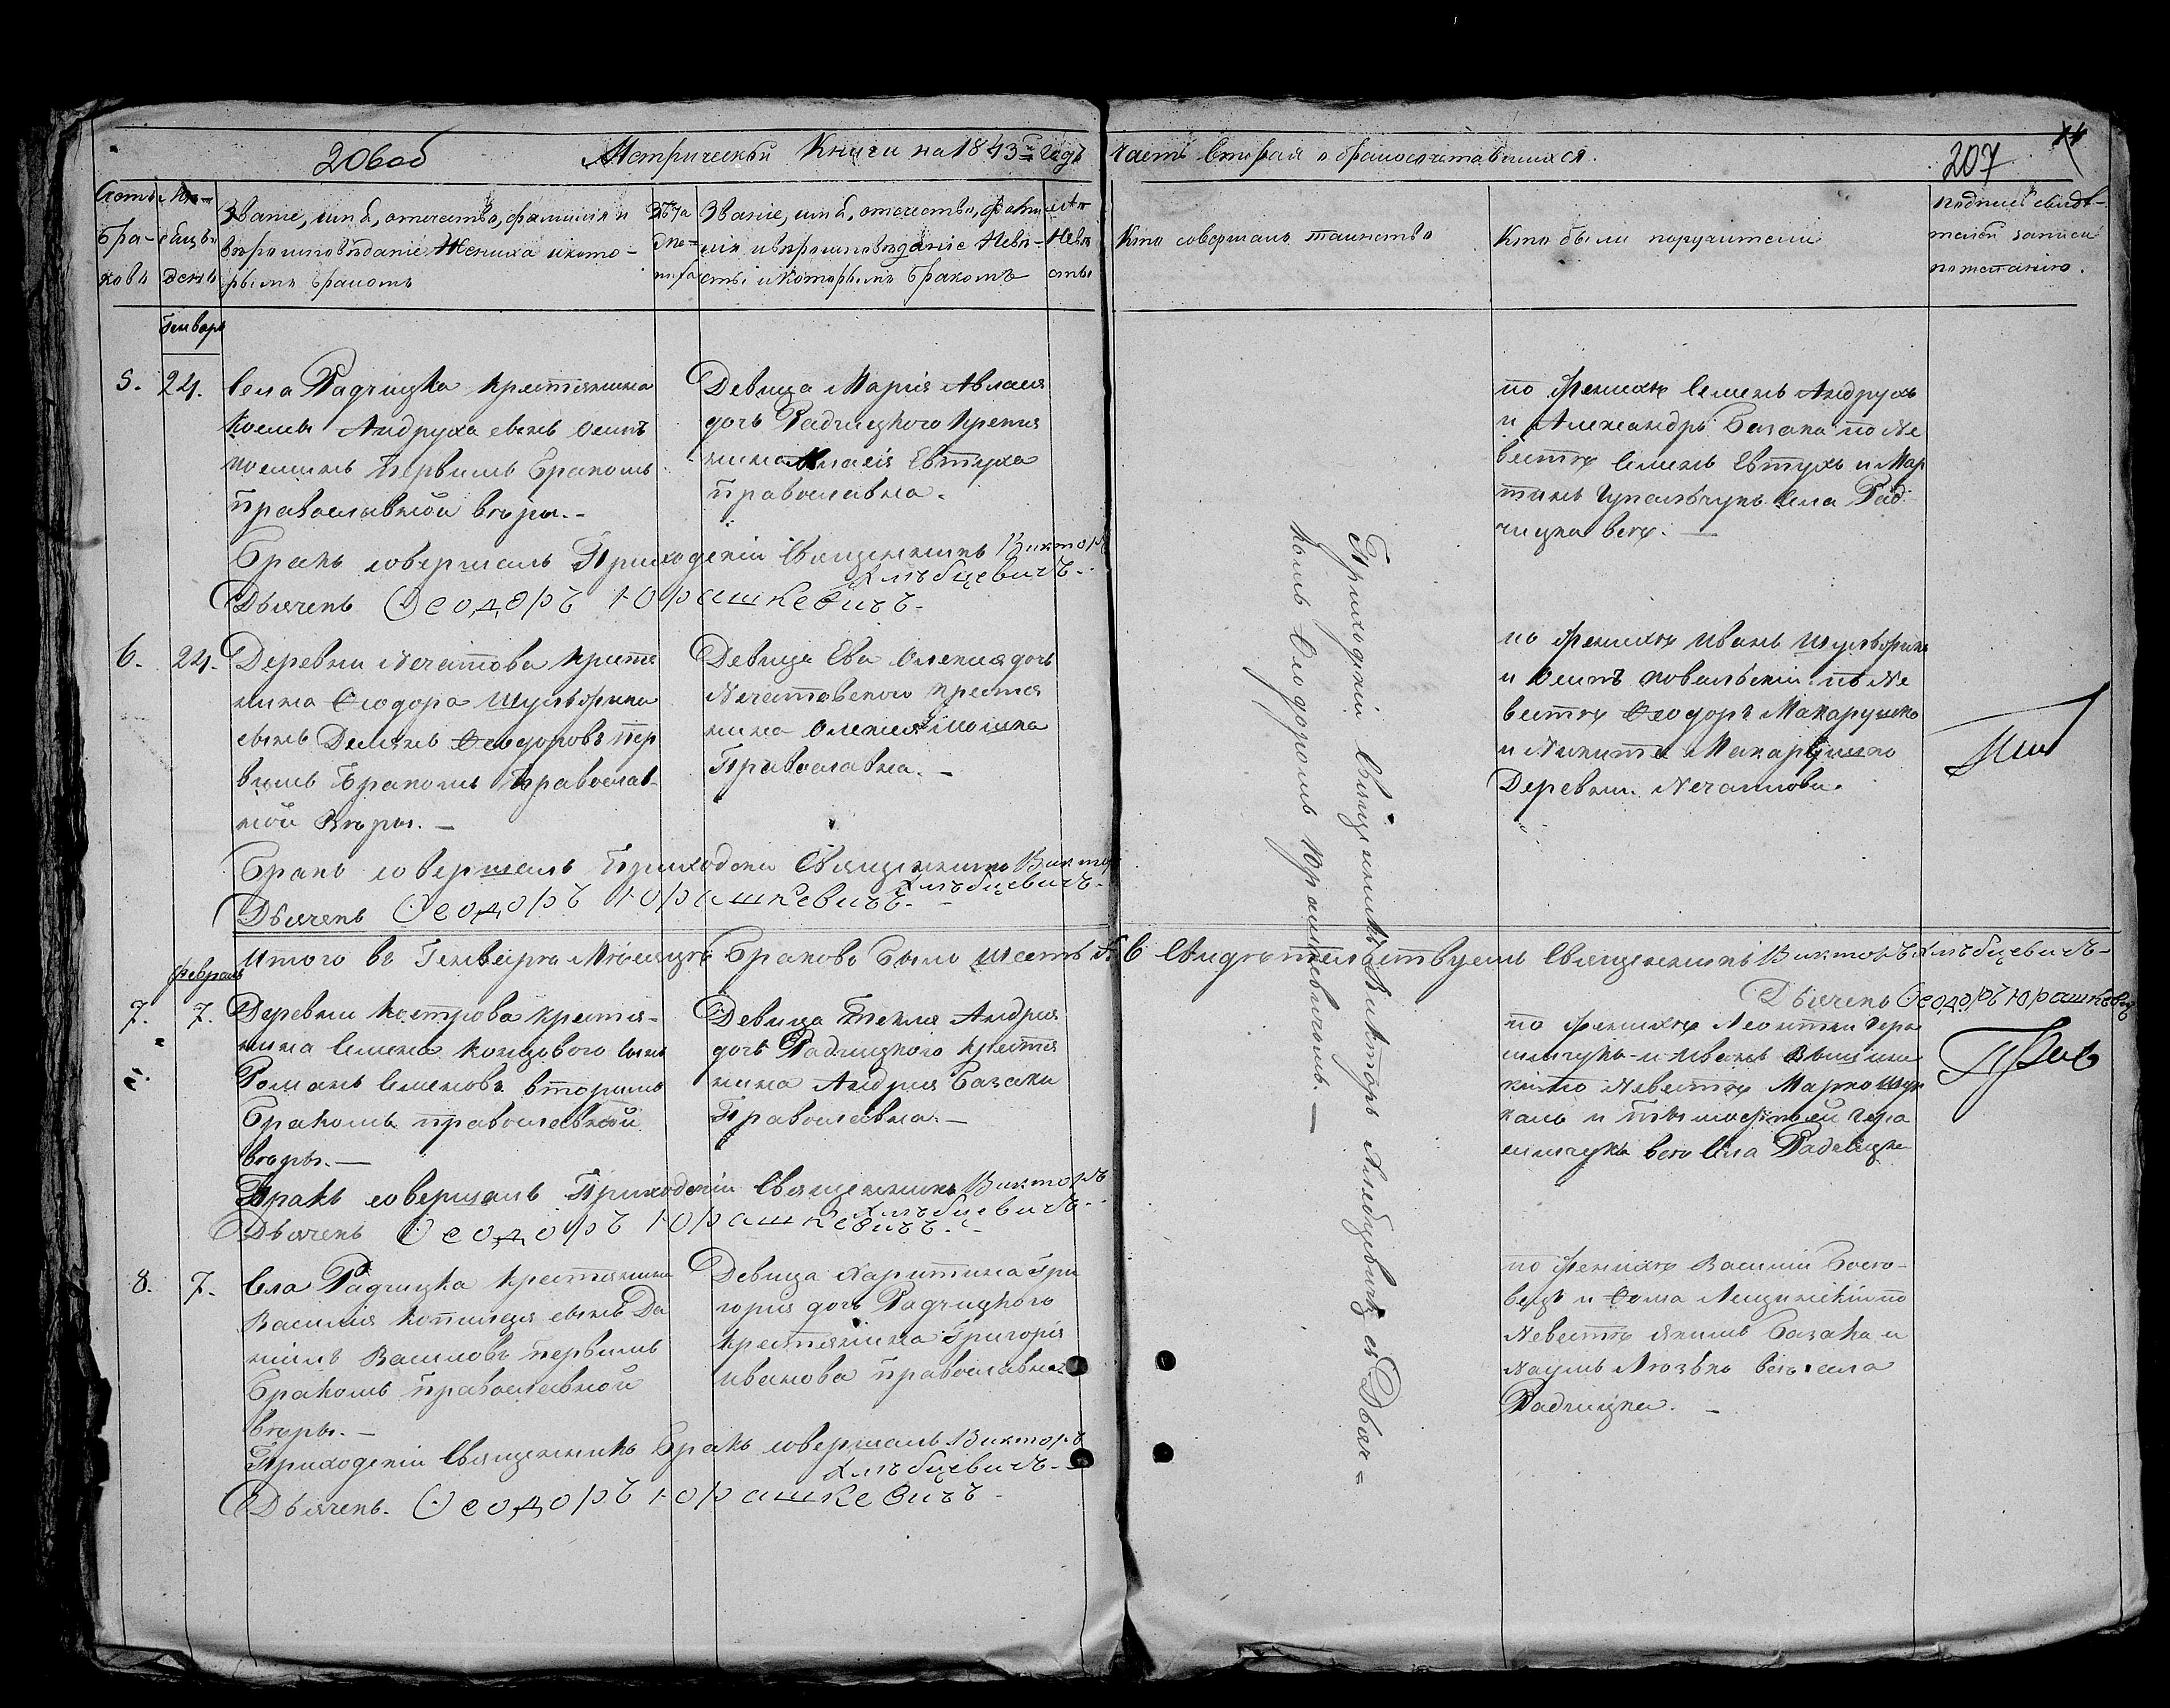 206 об
Метрической Книги на 1843й годъ
часть вторая о бракосочетавшихся.
207
Счетъ браковъ
Мѣсяцъ и день
Званіе, имя, отечество, фамилія и
вѣроисповѣданіе Жениха и кото-
рымъ бракомъ
Лѣта жениха
Званіе, имя, отечество, фами
лія и вѣроисповѣданіе Невѣ-
сты и которымъ бракомъ
Лѣта Невѣсты
Кто совершалъ таинство
Кто были поручители
подпись свидѣ-
телей записи
по желанію.
Генварь
5.
24.
Села Радчицка крестянина
Космы Андруха сынъ Осипъ
Косминъ Первымъ Бракомъ
Православной вѣры.-
Девица Марія Авласія
дочь Радчицкого крестя
нина Власія Евтуха
православна.
по Женихѣ Семенъ Андрухъ
и Александръ Базака по Не
вестѣ Семенъ Евтухъ и Мар
тинъ села Рад
чицка всѣ. —
Бракъ совершалъ Приходскій Священникъ Викторъ
Хлѣбцевичъ.
Дьячекъ Ѳеодоръ Юрашкевичъ.
6.
24.
Деревни Нечатова крестя
нина Ѳеодора Шульжика
сынъ Демянъ Ѳеодоровъ пер
вымъ Бракомъ Православ-
ной Вѣры. —
Девица Ева Олексія дочь
Нечатовского крестя
нина Олексія
Православна. —
по Женихѣ Иванъ Шульжикъ
и Осипъ Ковальскій по Не
вестѣ Ѳеодоръ Макарушко
и Никита Макарушко
Деревни Нечатова.
Бракъ совершалъ Приходскій Священникъ Викторъ
Хлѣбцевичъ.
Дьячекъ Ѳеодоръ Юрашкевичъ.
Итого въ Генварѣ Мѣсяцѣ Браковъ было шесть 6 Свидѣтельствуемъ Священникъ Викторъ Хлѣбцевичъ-
Дьячекъ Ѳеодоръ Юрашкевичъ
Февраль
7.
7.
Деревни Кострова крестя-
нина Семена Концового сынъ
Романъ Семеновъ вторымъ
Бракомъ православной
вѣры. —
Девица Текля Андрия
дочь Радчицкого крестя
нина Андрия Базаки
Православна. —
по Женихѣ Леонтій Гера
симчукъ и Иванъ
по Невестѣ Марко
и Тимофей Гера
симчукъ всѣ села Радчицка
Бракъ совершалъ Приходскій Священникъ Викторъ
Хлѣбцевичъ.
Дьячекъ Ѳеодоръ Юрашкевичъ.
8.
7.
Села Радчицка крестянина
Василія сынъ Да
ниилъ Василовъ первымъ
Бракомъ православной
вѣры. —
Девица Харитина Гри
горія дочь Радчицкого
крестянина Григорія
Иванова православна.
по Женихѣ Василій
и Ѳома Лещинскій по
Невестѣ Якимъ Базака и
Наумъ всѣ села
Радчицка. —
Приходскій Священникъ Бракъ совершалъ Викторъ
Хлѣбцевичъ.-
Дьячекъ. Ѳеодоръ Юрашкевичъ-
Приходскій Священникъ Викторъ Хлебцевичъ съ Дьяч=
комъ Ѳеодоромъ Юрашкевичомъ. —